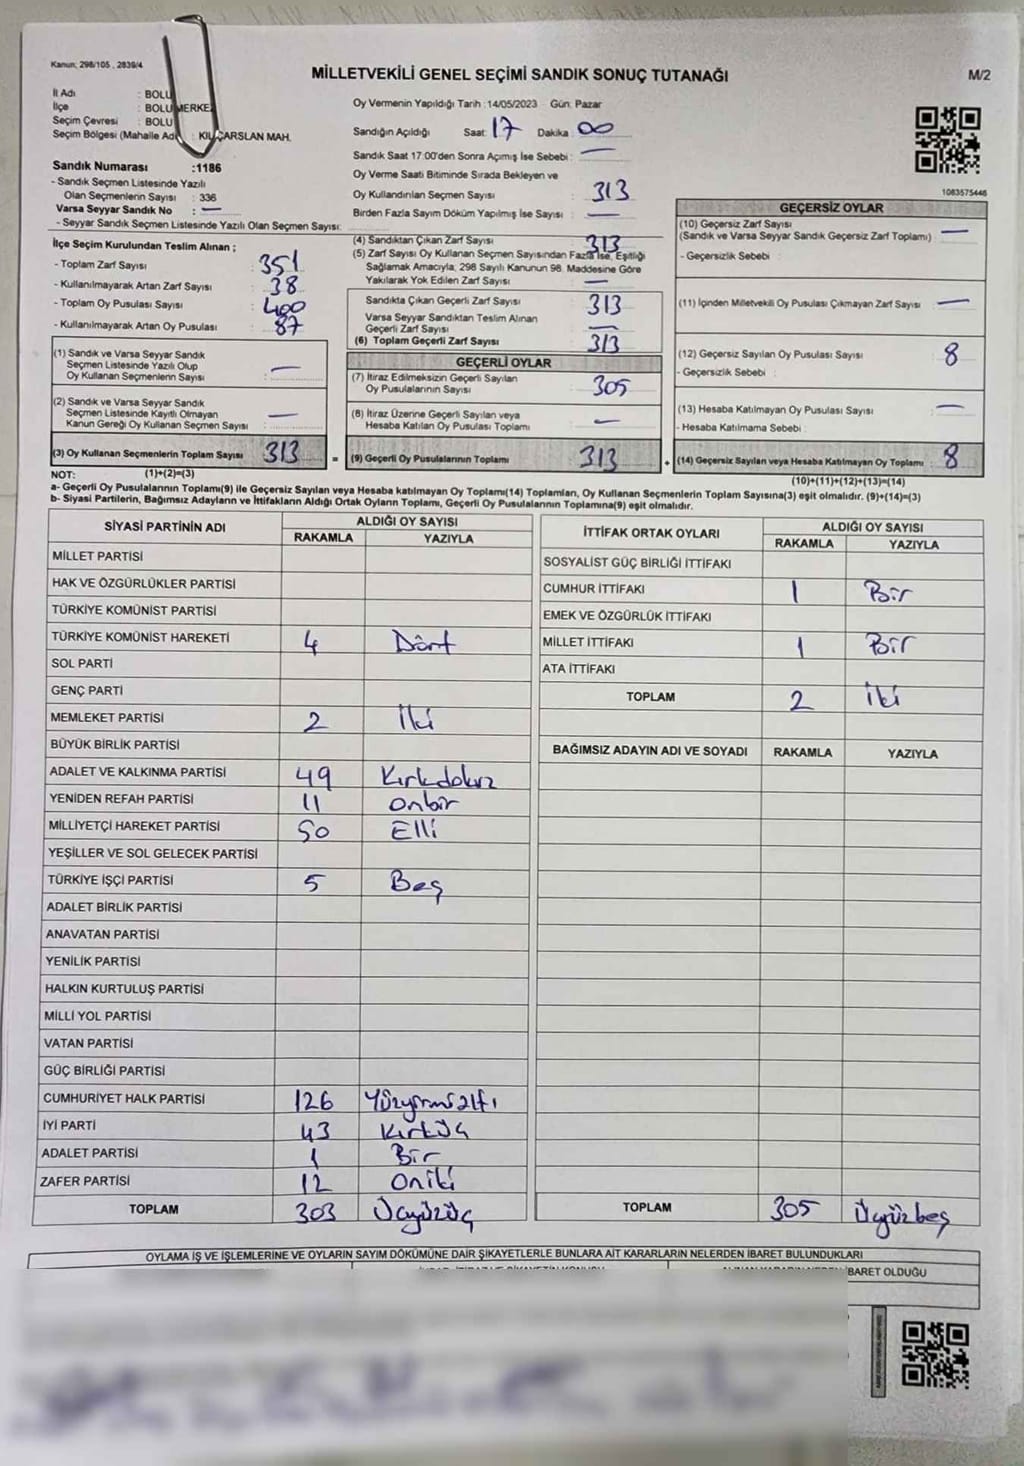 Kanun; 298/105 , 2839/4
MİLLETVEKİLİ GENEL SEÇİMİ SANDIK SONUÇ TUTANAĞI
M/2
İl Adı : BOLU
İlçe : BOLU MERKEZ
Seçim Çevresi : BOLU
Seçim Bölgesi (Mahalle Adı : KILIÇARSLAN MAH.
Sandık Numarası :1186
- Sandık Seçmen Listesinde Yazılı
Olan Seçmenlerin Sayısı : 336
Varsa Seyyar Sandık No : —
- Seyyar Sandık Seçmen Listesinde Yazılı Olan Seçmen Sayısı:
İlçe Seçim Kurulundan Teslim Alınan ;
- Toplam Zarf Sayısı : 351
- Kullanılmayarak Artan Zarf Sayısı : 38
- Toplam Oy Pusulası Sayısı : 400
- Kullanılmayarak Artan Oy Pusulası : 87
(1) Sandık ve Varsa Seyyar Sandık
Seçmen Listesinde Yazılı Olup
Oy Kullanan Seçmenlerin Sayısı : —
(2) Sandık ve Varsa Seyyar Sandık
Seçmen Listesinde Kayıtlı Olmayan
Kanun Gereği Oy Kullanan Seçmen Sayısı : —
(3) Oy Kullanan Seçmenlerin Toplam Sayısı : 313 =
Oy Vermenin Yapıldığı Tarih :14/05/2023 Gün: Pazar
Sandığın Açıldığı Saat: 17 Dakika : 00
Sandık Saat 17:00'den Sonra Açımış İse Sebebi : —
Oy Verme Saati Bitiminde Sırada Bekleyen ve
Oy Kullandırılan Seçmen Sayısı : 313
Birden Fazla Sayım Döküm Yapılmış İse Sayısı : —
(4) Sandıktan Çıkan Zarf Sayısı : 313
(5) Zarf Sayısı Oy Kullanan Seçmen Sayısından Fazla İse, Eşitliği
Sağlamak Amacıyla; 298 Sayılı Kanunun 98. Maddesine Göre
Yakılarak Yok Edilen Zarf Sayısı : —
Sandıkta Çıkan Geçerli Zarf Sayısı : 313
Varsa Seyyar Sandıktan Teslim Alınan
Geçerli Zarf Sayısı : —
(6) Toplam Geçerli Zarf Sayısı : 313
GEÇERLİ OYLAR
(7) İtiraz Edilmeksizin Geçerli Sayılan
Oy Pusulalarının Sayısı : 305
(8) İtiraz Üzerine Geçerli Sayılan veya
Hesaba Katılan Oy Pusulası Toplamı : —
(9) Geçerli Oy Pusulalarının Toplamı : 313 +
1083575446
GEÇERSİZ OYLAR
(10) Geçersiz Zarf Sayısı
(Sandık ve Varsa Seyyar Sandık Geçersiz Zarf Toplamı) : —
- Geçersizlik Sebebi :
(11) İçinden Milletvekili Oy Pusulası Çıkmayan Zarf Sayısı : —
(12) Geçersiz Sayılan Oy Pusulası Sayısı : 8
- Geçersizlik Sebebi :
(13) Hesaba Katılmayan Oy Pusulası Sayısı : —
- Hesaba Katılmama Sebebi :
(14) Geçersiz Sayılan veya Hesaba Katılmayan Oy Toplamı : 8
NOT: (1)+(2)=(3)
(10)+(11)+(12)+(13)=(14)
a- Geçerli Oy Pusulalarının Toplamı(9) ile Geçersiz Sayılan veya Hesaba katılmayan Oy Toplamı(14) Toplamları, Oy Kullanan Seçmenlerin Toplam Sayısına(3) eşit olmalıdır. (9)+(14)=(3)
b- Siyasi Partilerin, Bağımsız Adayların ve İttifakların Aldığı Ortak Oyların Toplamı, Geçerli Oy Pusulalarının Toplamına(9) eşit olmalıdır.
SİYASİ PARTİNİN ADI ALDIĞI OY SAYISI
RAKAMLA YAZIYLA
MİLLET PARTİSİ
HAK VE ÖZGÜRLÜKLER PARTİSİ
TÜRKİYE KOMÜNİST PARTİSİ
TÜRKİYE KOMÜNİST HAREKETİ 4 Dört
SOL PARTİ
GENÇ PARTİ
MEMLEKET PARTİSİ 2 İki
BÜYÜK BİRLİK PARTİSİ
ADALET VE KALKINMA PARTİSİ 49 Kırkdokuz
YENİDEN REFAH PARTİSİ 11 onbir
MİLLİYETÇİ HAREKET PARTİSİ 50 Elli
YEŞİLLER VE SOL GELECEK PARTİSİ
TÜRKİYE İŞÇİ PARTİSİ 5 Beş
ADALET BİRLİK PARTİSİ
ANAVATAN PARTİSİ
YENİLİK PARTİSİ
HALKIN KURTULUŞ PARTİSİ
MİLLİ YOL PARTİSİ
VATAN PARTİSİ
GÜÇ BİRLİĞİ PARTİSİ
CUMHURİYET HALK PARTİSİ 126 Yüzyirmialtı
İYİ PARTİ 43 Kırküç
ADALET PARTİSİ 1 Bir
ZAFER PARTİSİ 12 oniki
TOPLAM 303 Üçyüzüç
İTTİFAK ORTAK OYLARI ALDIĞI OY SAYISI
RAKAMLA YAZIYLA
SOSYALİST GÜÇ BİRLİĞİ İTTİFAKI
CUMHUR İTTİFAKI 1 Bir
EMEK VE ÖZGÜRLÜK İTTİFAKI
MİLLET İTTİFAKI 1 Bir
ATA İTTİFAKI
TOPLAM 2 İki
BAĞIMSIZ ADAYIN ADI VE SOYADI RAKAMLA YAZIYLA
TOPLAM 305 Üçyüzbeş
OYLAMA İŞ VE İŞLEMLERİNE VE OYLARIN SAYIM DÖKÜMÜNE DAİR ŞİKAYETLERLE BUNLARA AİT KARARLARIN NELERDEN İBARET BULUNDUKLARI
İBARET OLDUĞU